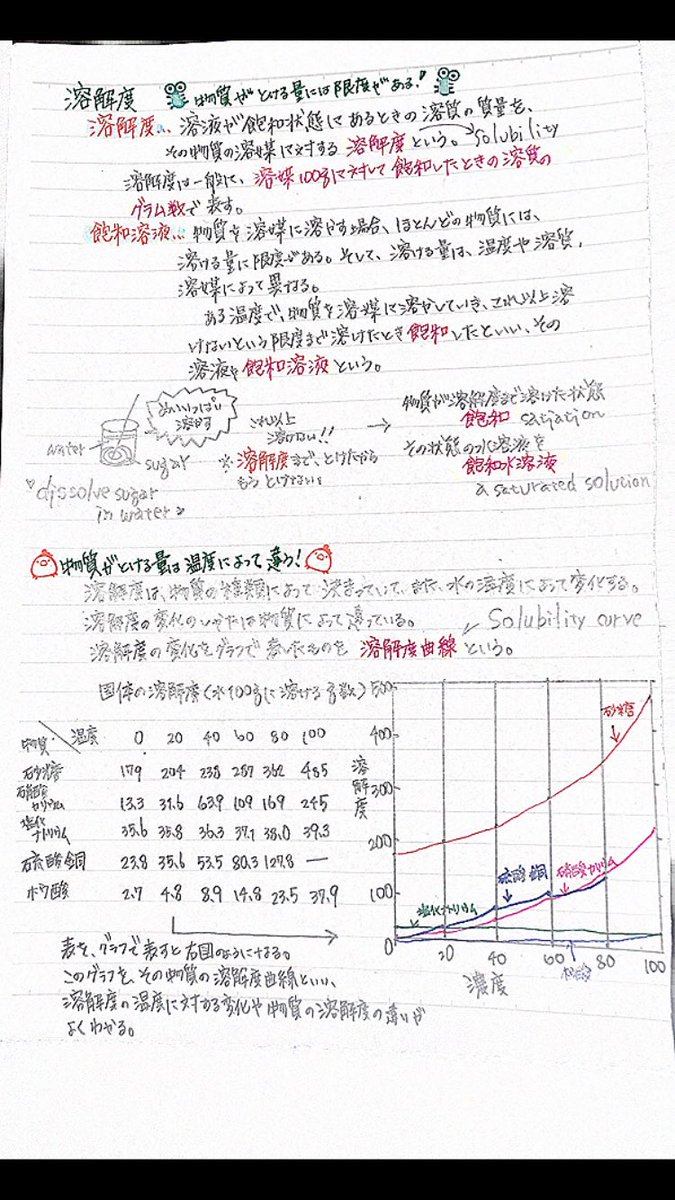 溶解度 物質がとける量には限度がある!
溶解度… 溶液が飽和状態にあるときの溶質の質量を、
その物質の溶媒に対する溶解度という。 solubility
溶解度は一般に、溶媒100gに対して飽和したときの溶質の
グラム数で表す。
飽和溶液… 物質を溶媒に溶やす場合、ほとんどの物質には、
溶ける量に限度がある。そして、溶ける量は、温度や溶質、
溶媒によって異なる。
ある温度で、物質を溶媒に溶かしていき、これ以上溶
けないという限度まで溶けたとき飽和したといい、その
溶液を飽和溶液という。
water
sugar
"dissolve sugar
in water"
めいいっぱい
溶かす
これ以上
溶けない!!
※溶解度まで、とけたから
もうとけない。
→
物質が溶解度まで溶けた状態
飽和 satiation
その状態の水溶液を
飽和水溶液
a saturated solution
物質がとける量は温度によって違う!
溶解度は、物質の種類によって決まっていて、また、水の温度によって変化する。
溶解度の変化のしかたは物質によって違っている。
溶解度の変化をグラフで表したものを溶解度曲線という。 Solubility curve
固体の溶解度(水100gに溶ける g数)
物質 温度 0 20 40 60 80 100
砂糖 179 204 238 287 362 485
硝酸カリウム 13.3 31.6 63.9 109 169 245
塩化ナトリウム 35.6 35.8 36.3 37.1 38.0 39.3
硫酸銅 23.8 35.6 53.5 80.3 127.8 —
ホウ酸 2.7 4.8 8.9 14.8 23.5 37.9
表を、グラフで表すと右図のようになる。
このグラフを、その物質の溶解度曲線といい、
溶解度の温度に対する変化や物質の溶解度の違いが
よくわかる。
500
400
300
200
100
0
溶解度
砂糖
硫酸銅
硝酸カリウム
塩化ナトリウム
20 40 60 80 100
濃度